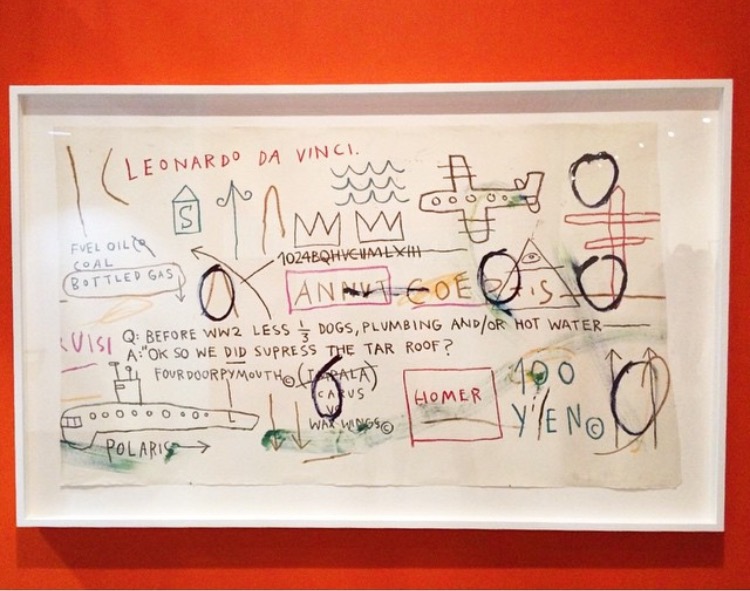 LEONARDO DA VINCI.
S
FUEL OIL
COAL
BOTTLED GAS
1024BQHVCVIMLXIII
ANNUIT COEPTIS
Q: BEFORE WW2 LESS 1/3 DOGS, PLUMBING AND/OR HOT WATER
A: "OK SO WE DID SUPRESS THE TAR ROOF?
FOURDOORPYMOUTH© (IMPALA)
CARUS
VS
WAX WINGS©
HOMER
100
YEN©
POLARIS